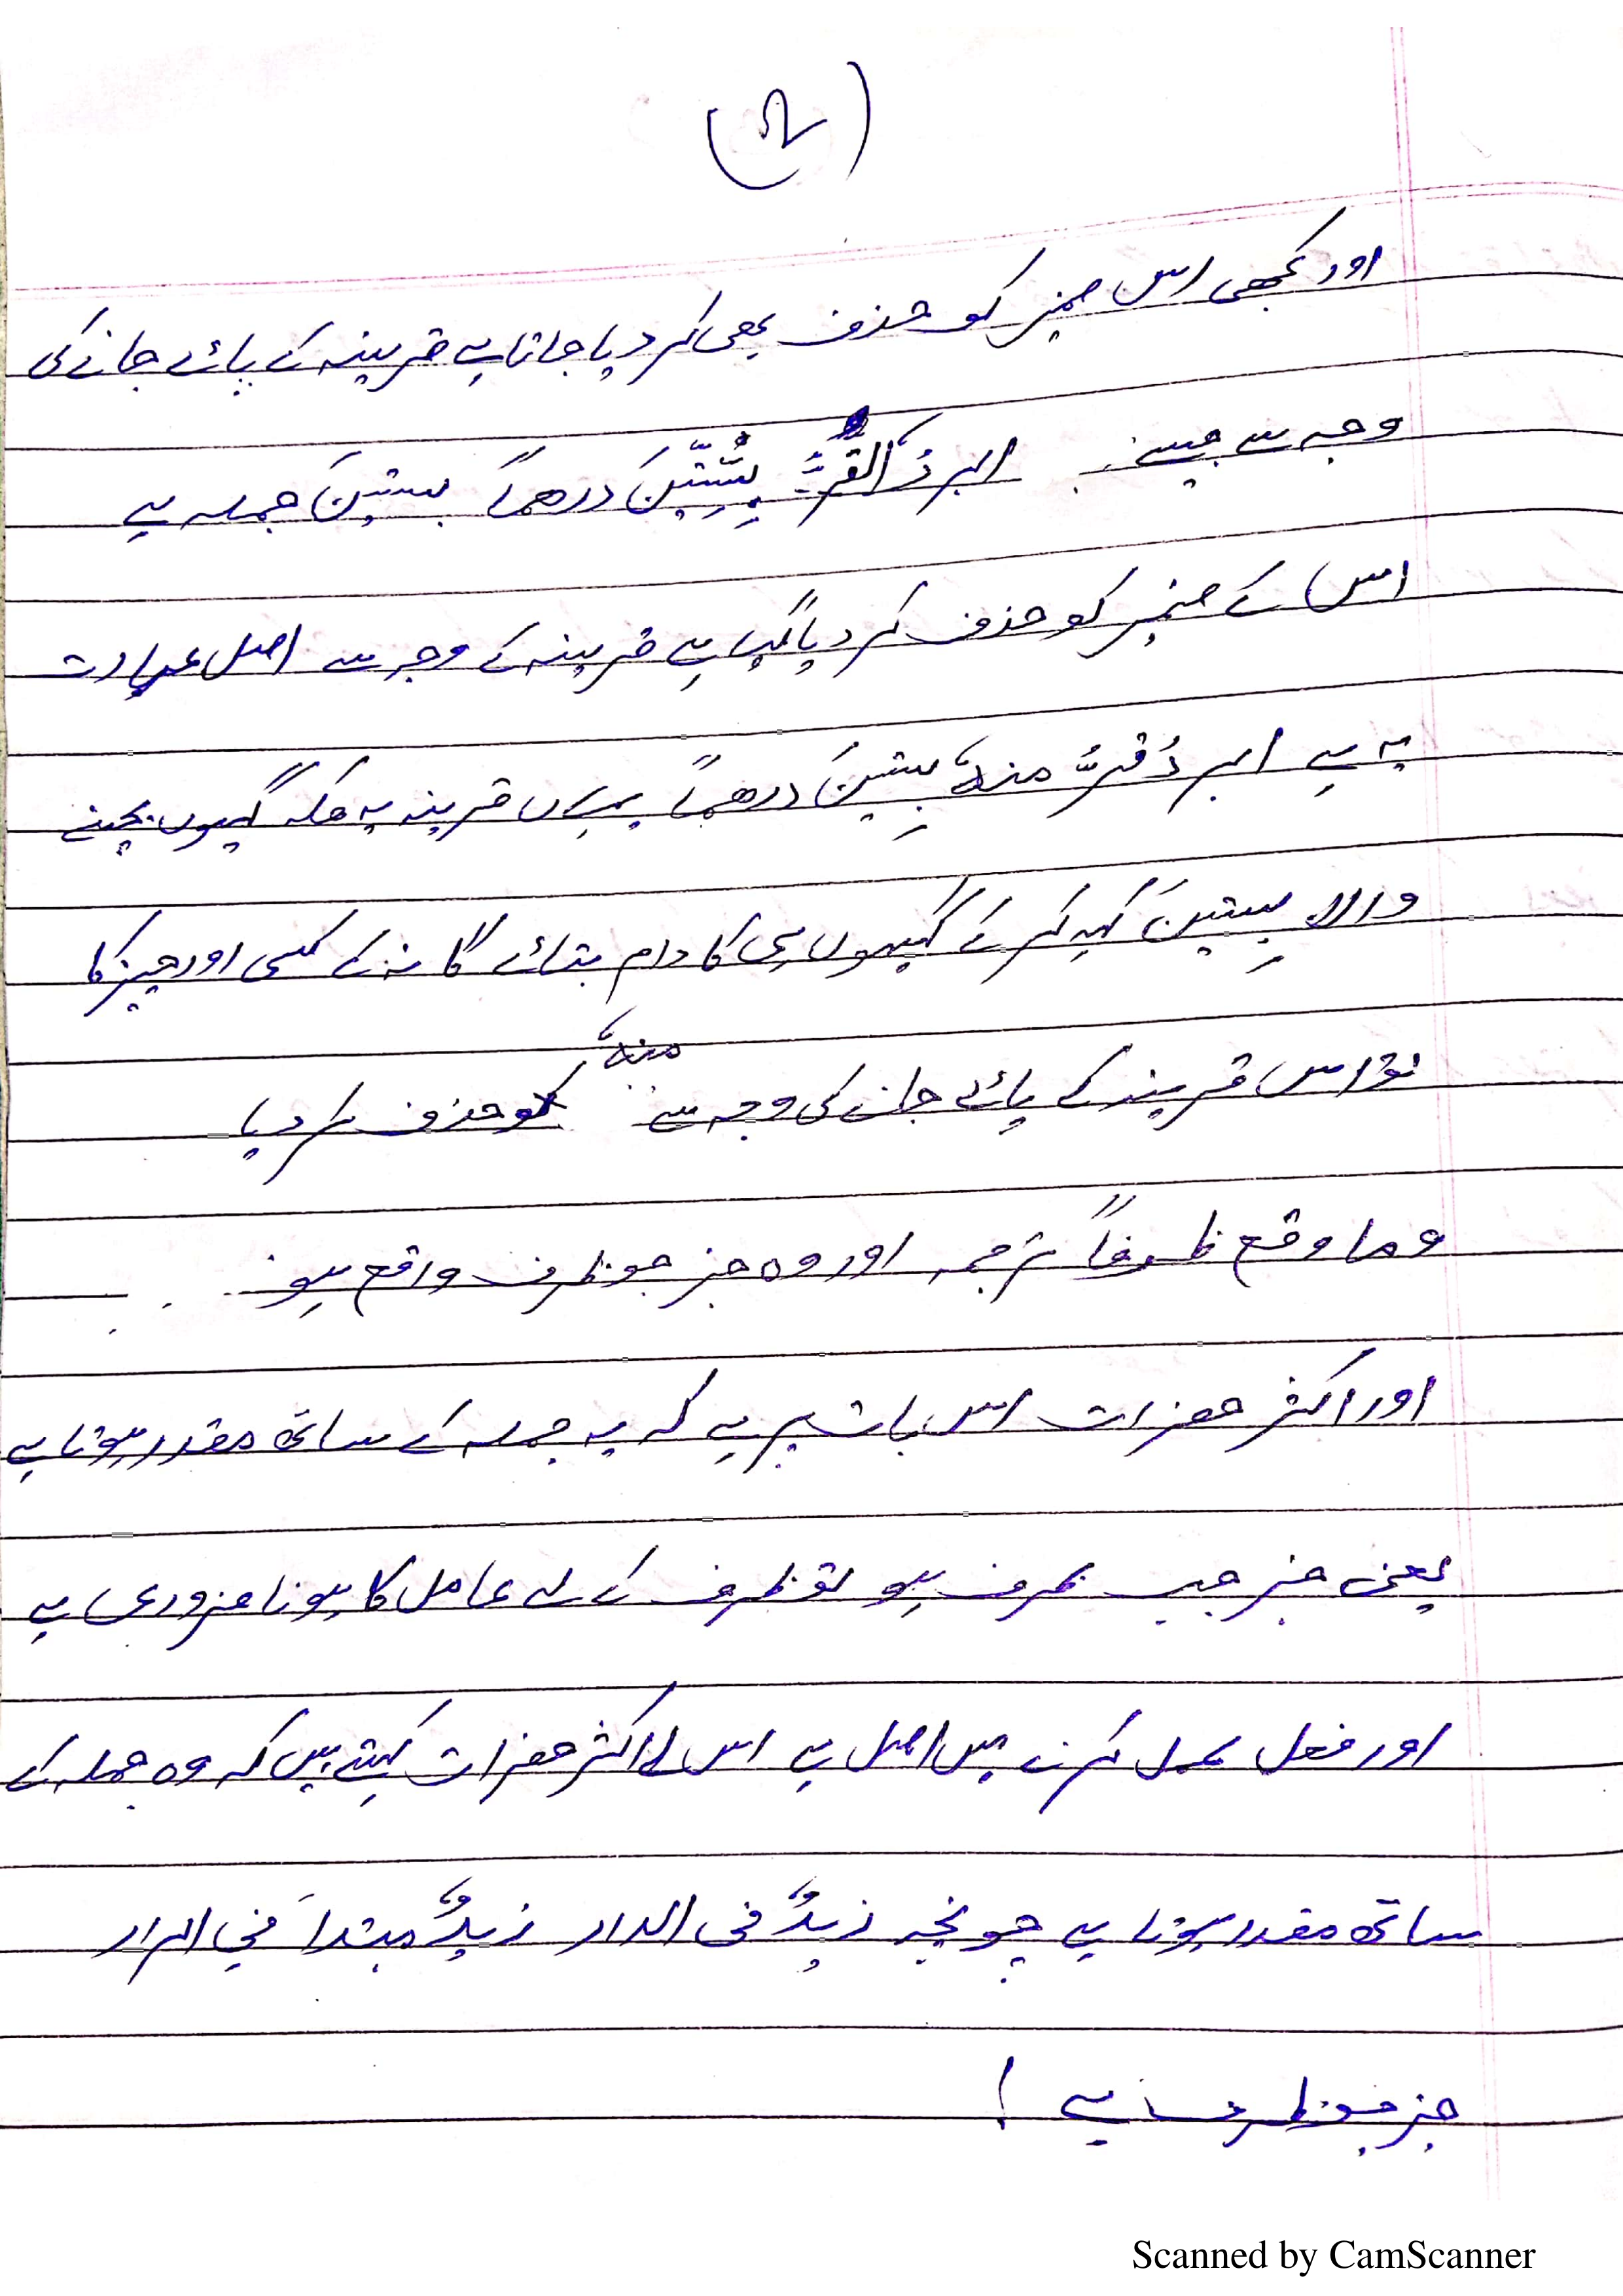 (۲)
اور کبھی اس ضمیر کو حذف بھی کر دیا جاتا ہے قرینہ کے پائے جانے کی
وجہ سے جیسے: البرُ الكُرُّ بِسِتِّينَ درهماً بستینَ جملہ ہے
اس کے ضمیر کو حذف کر دیا گیا ہے قرینہ کے وجہ سے اصل عبارت
یہ ہے البرُ کرُّ منہُ بِستینَ درهماً یہاں قرینہ یہ کہ گیہوں بچنے
والا بِستینَ کہہ کر کے گیہوں ہی کا دام بتائے گا نہ کے کسی اور چیز کا
تو اس قرینہ کے پائے جانے کی وجہ سے منہُ کو حذف کر دیا
وما وقع ظرفاً ترجمہ اور وہ خبر جو ظرف واقع ہو
اور اکثر حضرات اس بات پر ہے کہ یہ جملہ کے ساتھ مقدر ہوتا ہے
یعنی خبر جب ظرف ہو تو ظرف کے لے عامل کا ہونا ضروری ہے
اور فعل عمل کرنے میں اصل ہے اس لے اکثر حضرات کہتے ہیں کہ وہ جملہ کے
ساتھ مقدر ہوتا ہے چونچہ زیدٌ فی الدار زیدٌ مبتدأ فی الدار
خبر جو ظرف ہے ۔
Scanned by CamScanner